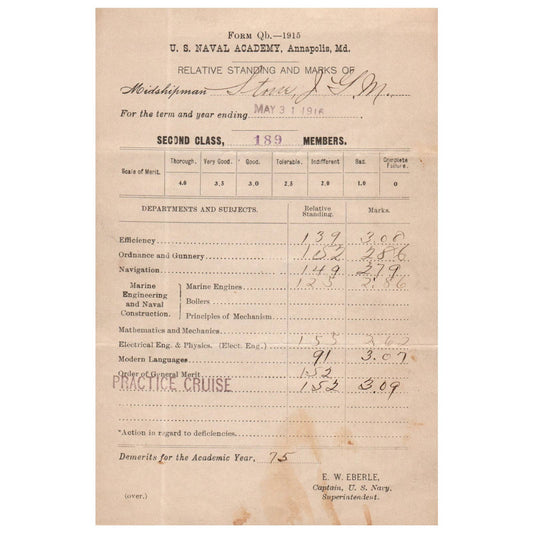 FORM Qb.—1915
U. S. NAVAL ACADEMY, Annapolis, Md.
RELATIVE STANDING AND MARKS OF
Midshipman Stone, J. G. M.
For the term and year ending MAY 31 1916
SECOND CLASS, 189 MEMBERS.
Scale of Merit. Thorough. Very Good. Good. Tolerable. Indifferent Bad. Complete Failure.
4.0 3.5 3.0 2.5 2.0 1.0 0
DEPARTMENTS AND SUBJECTS. Relative Standing. Marks.
Efficiency 139 3.08
Ordnance and Gunnery 102 2.86
Navigation 149 2.79
Marine Engineering and Naval Construction. Marine Engines 125 2.86
Boilers
Principles of Mechanism
Mathematics and Mechanics
Electrical Eng. & Physics. (Elect. Eng.) 155
Modern Languages 91 3.07
Order of General Merit 152
PRACTICE CRUISE 152 3.09
*Action in regard to deficiencies.
Demerits for the Academic Year, 75
E. W. EBERLE,
Captain, U. S. Navy,
Superintendent.
(over.)